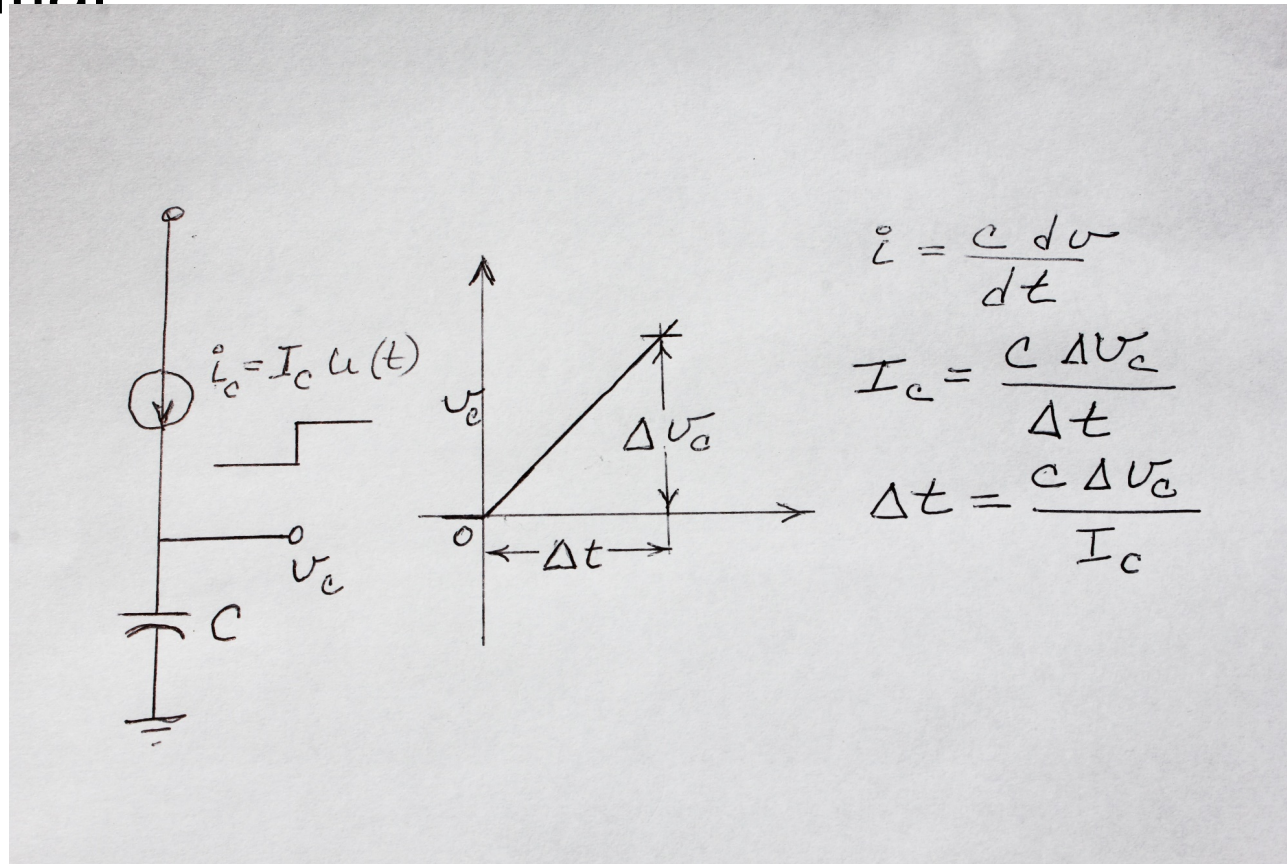 i_c = I_c u(t)
v_c
C
v_c
Δv_c
0
Δt
i = c dv / dt
I_c = c Δv_c / Δt
Δt = c Δv_c / I_c